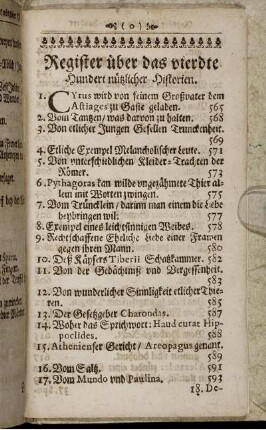 ( o )
Register über das vierdte
Hundert nützlicher Historien.
1. CYrus wird von seinem Großvater dem
Astiages zu Gaste geladen. 565
2. Vom Tantzen/ was darvon zu halten. 568
3. Von etlicher Jungen Gesellen Trunckenheit.
569
4. Etliche Exempel Melancholischer Leute. 571
5. Von unterschiedlichen Kleider-Trachten der
Römer. 573
6. Pythagoras kan wilde ungezähmete Thier al-
lein mit Worten zwingen. 575
7. Vom Trüncklein/ darinn man einem die Liebe
beybringen wil: 577
8. Exempel eines leichtsinnigen Weibes. 578
9. Rechtschaffene Eheliche Liebe einer Frauen
gegen ihren Mann. 580
10. Deß Käysers Tiberii Schatzkammer. 582
11. Von der Gedächtniß und Vergessenheit.
583
12. Von wunderlicher Sinnligkeit etlicher Thie-
ren. 585
13. Der Gesetzgeber Charondas. 587
14. Woher das Sprichwort: Haud curat Hip-
poclides. 588
15. Athenienser Gericht/ Areopagus genant.
589
16. Vom Saltz. 591
17. Vom Mundo und Paulina. 593
18. De-